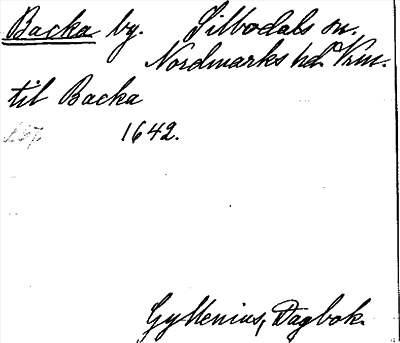 Backa by. Silbodals sn.
Nordmarks hd. Vrm.
til Backa
1642.
Gyllenius, Dagbok.